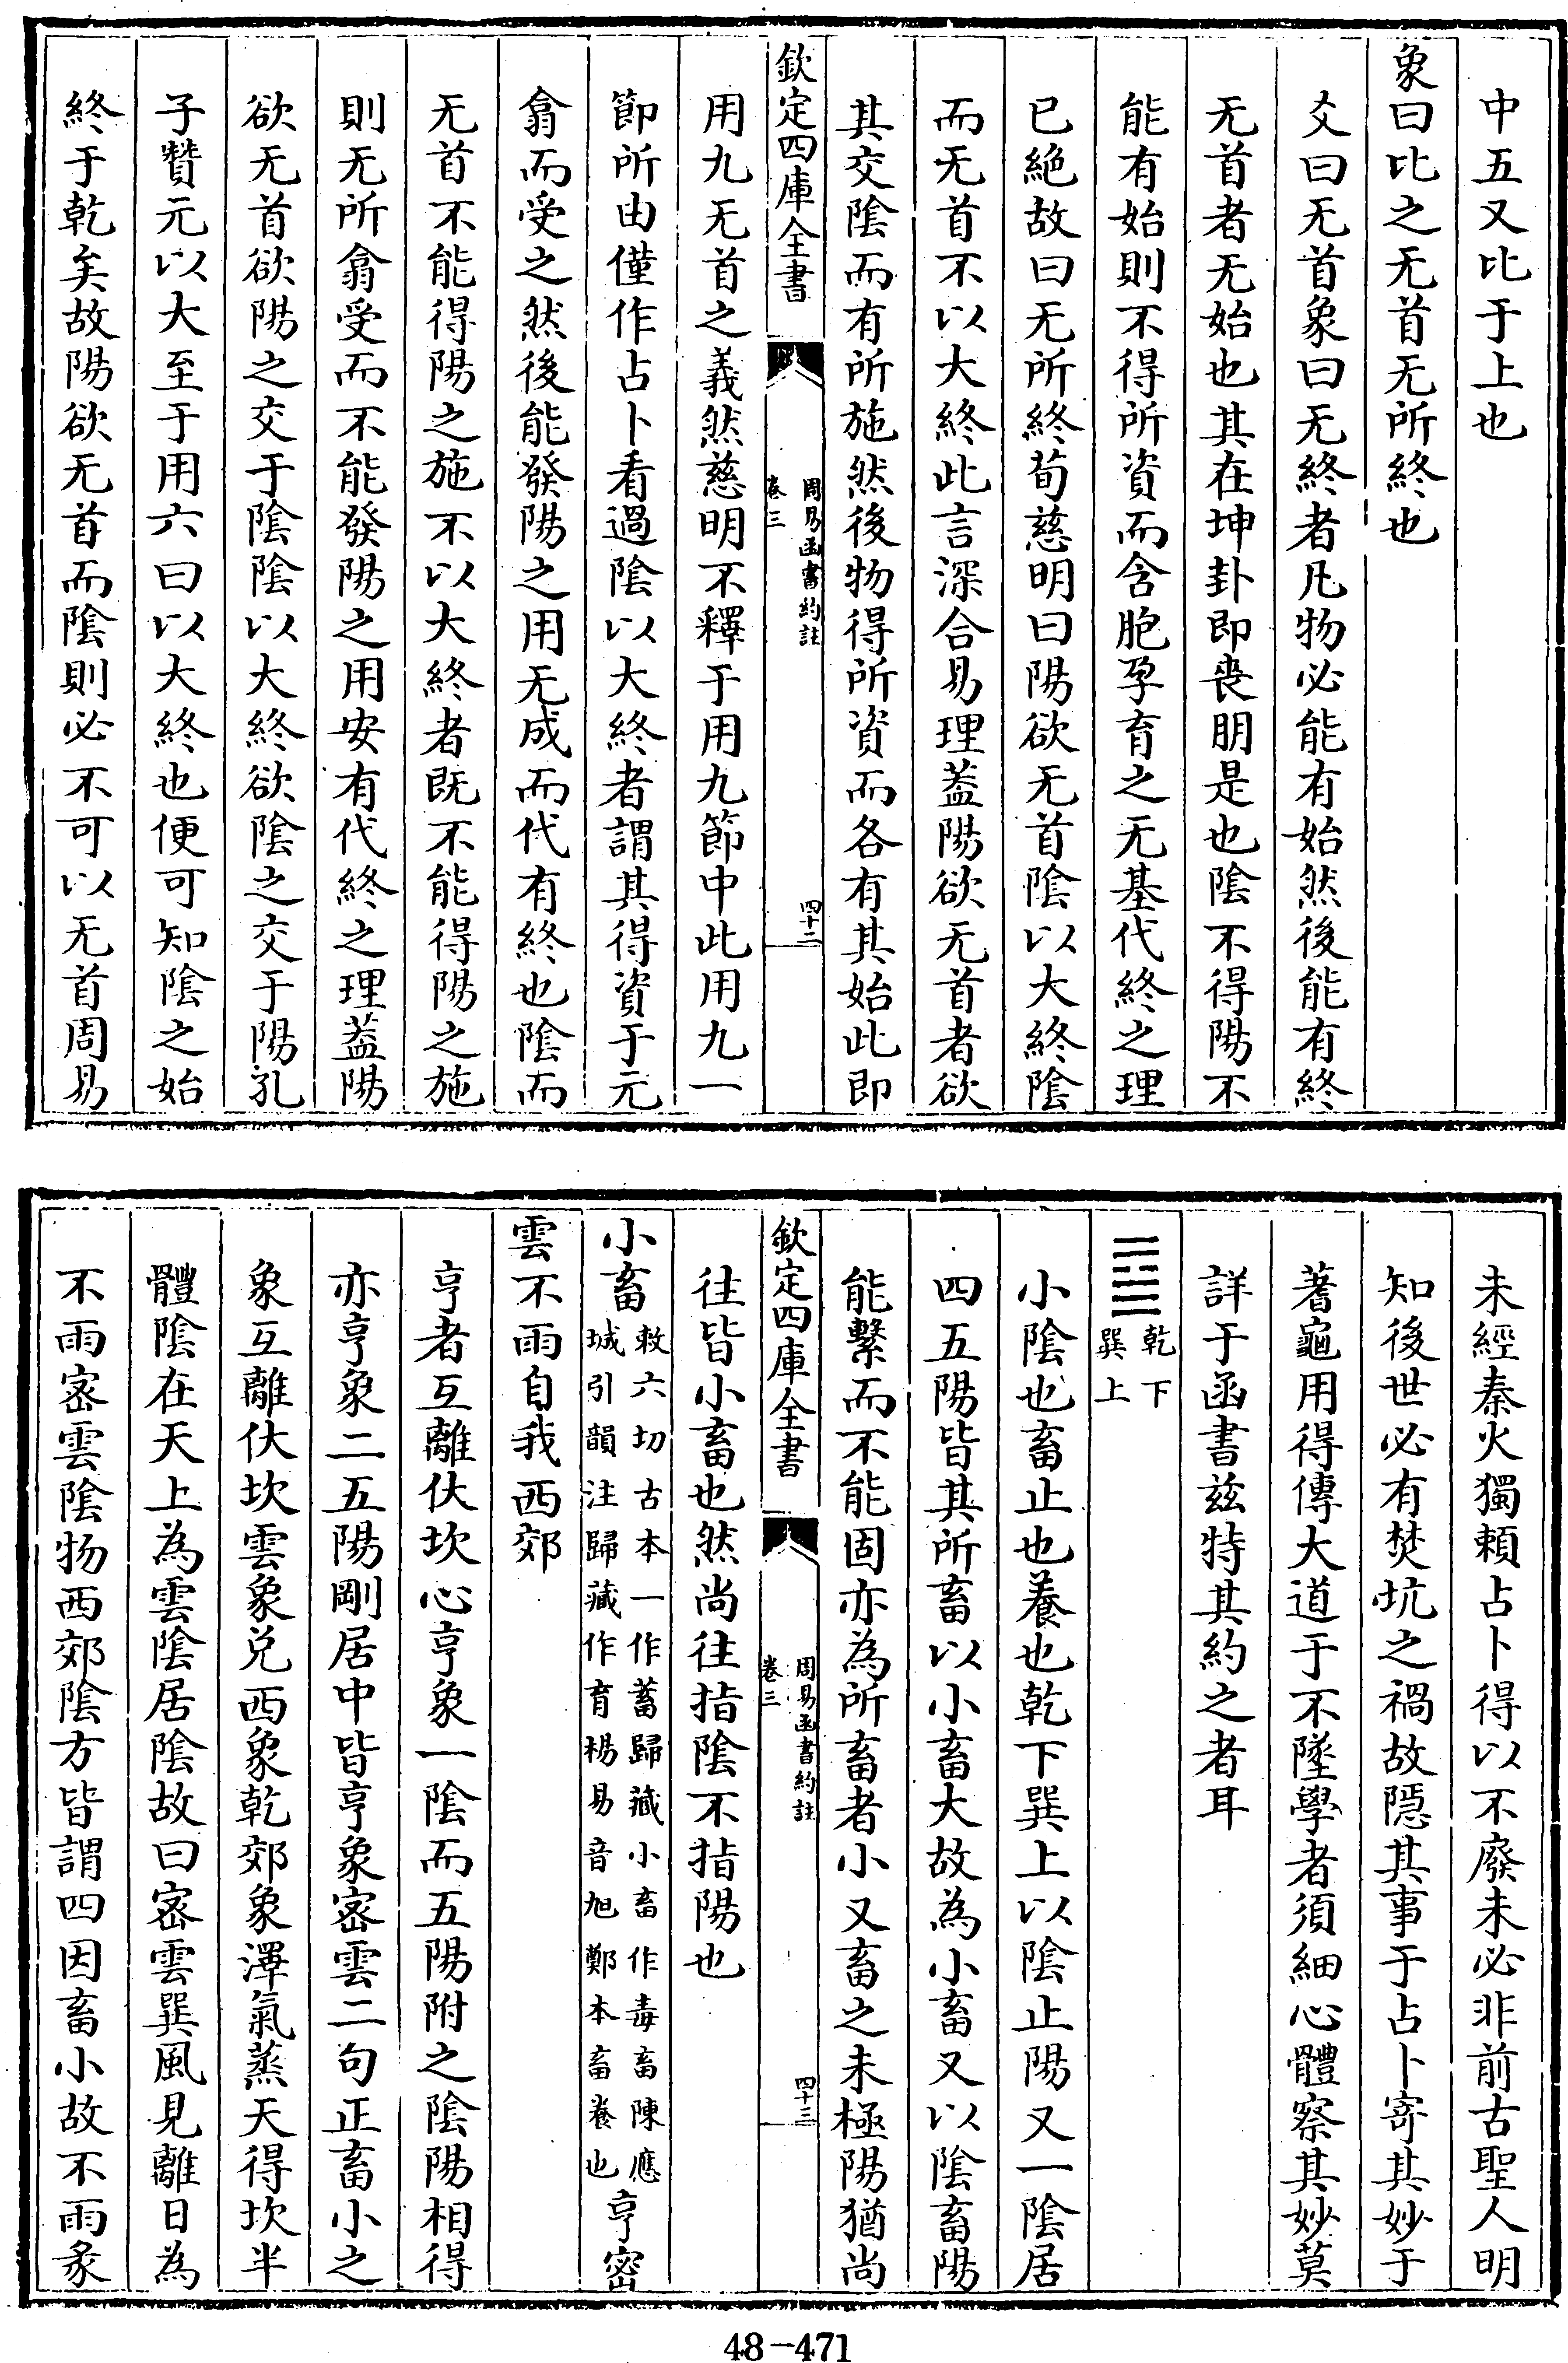 中五又比于上也
象曰比之无首无所終也
爻曰无首象曰无終者凡物必能有始然後能有終
无首者无始也其在坤卦即喪朋是也陰不得陽不
能有始則不得所資而含胞孕育之无基代終之理
已絕故曰无所終荀慈明曰陽欲无首陰以大終陰
而无首不以大終此言深合易理蓋陽欲无首者欲
其交陰而有所施然後物得所資而各有其始此即
欽定四庫全書
周易函書約註
卷三
四十二
用九无首之義然慈明不釋于用九節中此用九一
節所由僅作占卜看過陰以大終者謂其得資于元
翕而受之然後能發陽之用无成而代有終也陰而
无首不能得陽之施不以大終者既不能得陽之施
則无所翕受而不能發陽之用安有代終之理蓋陽
欲无首欲陽之交于陰陰以大終欲陰之交于陽孔
子贊元以大至于用六曰以大終也便可知陰之始
終于乾矣故陽欲无首而陰則必不可以无首周易
未經秦火獨賴占卜得以不廢未必非前古聖人明
知後世必有焚坑之禍故隱其事于占卜寄其妙于
蓍龜用得傳大道于不墜學者須細心體察其妙莫
詳于函書茲特其約之者耳
䷈
乾下
巽上
小陰也畜止也養也乾下巽上以陰止陽又一陰居
四五陽皆其所畜以小畜大故為小畜又以陰畜陽
能繫而不能固亦為所畜者小又畜之未極陽猶尚
欽定四庫全書
周易函書約註
卷三
四十三
往皆小畜也然尚往指陰不指陽也
小畜
敕六切古本一作蓄歸藏小畜作毒畜陳應
城引韻注歸藏作育楊易音旭鄭本畜養也
亨密
雲不雨自我西郊
亨者互離伏坎心亨象一陰而五陽附之陰陽相得
亦亨象二五陽剛居中皆亨象密雲二句正畜小之
象互離伏坎雲象兌西象乾郊象澤氣蒸天得坎半
體陰在天上為雲陰居陰故曰密雲巽風見離日為
不雨密雲陰物西郊陰方皆謂四因畜小故不雨彖
48-471